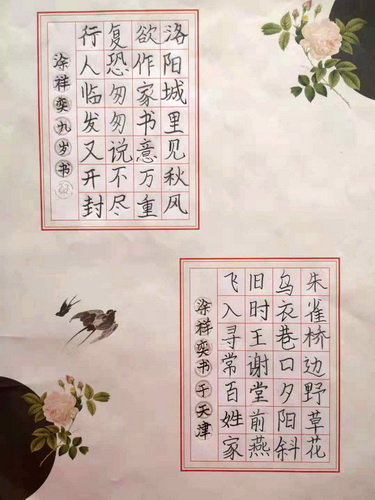 洛阳城里见秋风
欲作家书意万重
复恐匆匆说不尽
行人临发又开封
涂祥奕九岁书
朱雀桥边野草花
乌衣巷口夕阳斜
旧时王谢堂前燕
飞入寻常百姓家
涂祥奕书于天津